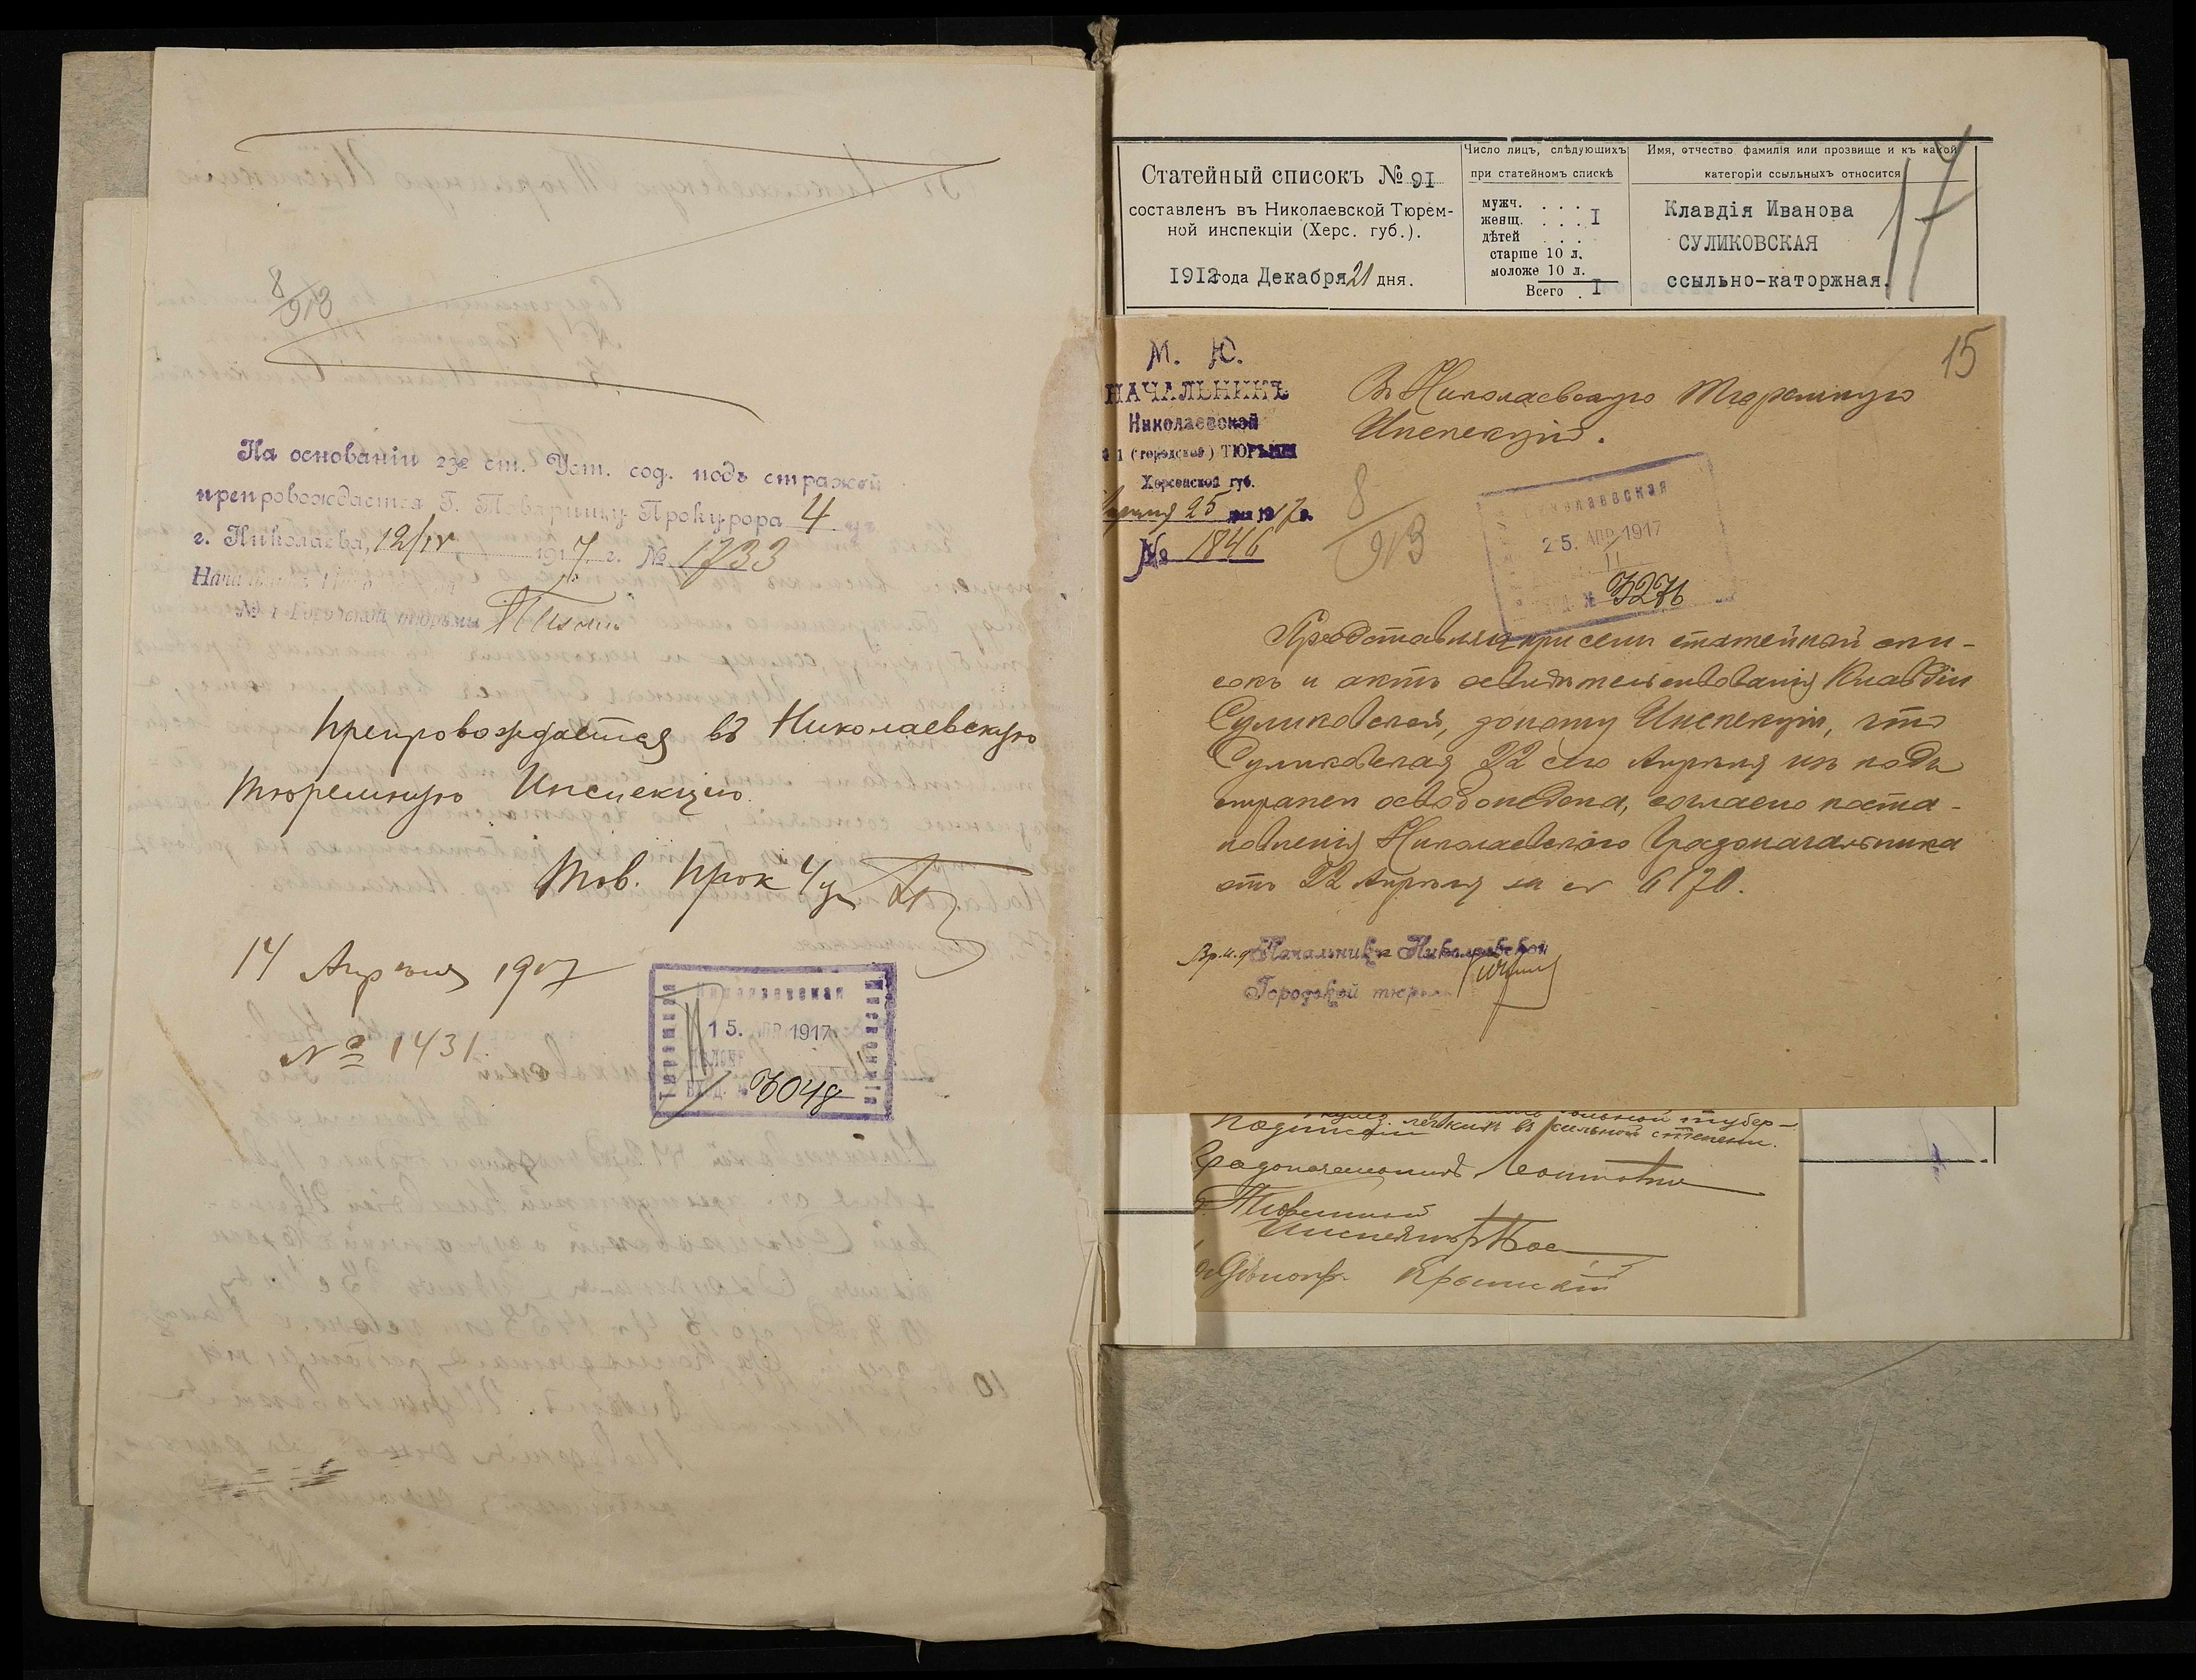 8/913
На основаніи 232 ст. Уст. сод. подъ стражей
препровождается Г. Товарищу Прокурора 4 уч.
г. Николаева, 12/IV 1917 г. № 1733
№ 1 Городской тюрьмы
Препровождается въ Николаевскую
Тюремную Инспекцію.
Тов. Прок 4 уч
14 Апрѣля 1917
№ 1431.
Николаевская
15. АПР 1917
ВХОД. № 3048
Тюремная
Инспекція
10
Статейный списокъ № 91
составленъ въ Николаевской Тюрем-
ной инспекціи (Херс. губ.).
1912 года Декабря 21 дня.
Число лицъ, слѣдующихъ
при статейномъ спискѣ
мужч. . . .
женщ. . . . I
дѣтей . . .
старше 10 л.
моложе 10 л.
Всего . I
Имя, отчество фамилія или прозвище и къ какой
категоріи ссыльныхъ относится
Клавдія Иванова
СУЛИКОВСКАЯ
ссыльно-каторжная.
17
15
М. Ю.
НАЧАЛЬНИКЪ
Николаевской
№ 1 (городской) ТЮРЬМЫ
Херсонской губ.
Апрѣля 25 дня 1917 г.
№ 1846
Въ Николаевскую Тюремную
Инспекцію.
8/913
Николаевская
25. АПР 1917
ВХОД. № 3276
Представляя при семъ статейный спи-
сокъ и актъ освидѣтельствованія Клавдіи
Суликовской, доношу Инспекціи, что
Суликовская 22 сего Апрѣля изъ подъ
стражи освобождена, согласно поста-
новленія Николаевскаго Градоначальника
отъ 22 Апрѣля за № 6170.
Вр. и. д. Начальника Николаевской
Городской тюрьмы
легкихъ въ сильной степени.
Подписали
Градоначальникъ
Тюремный
Инспекторъ